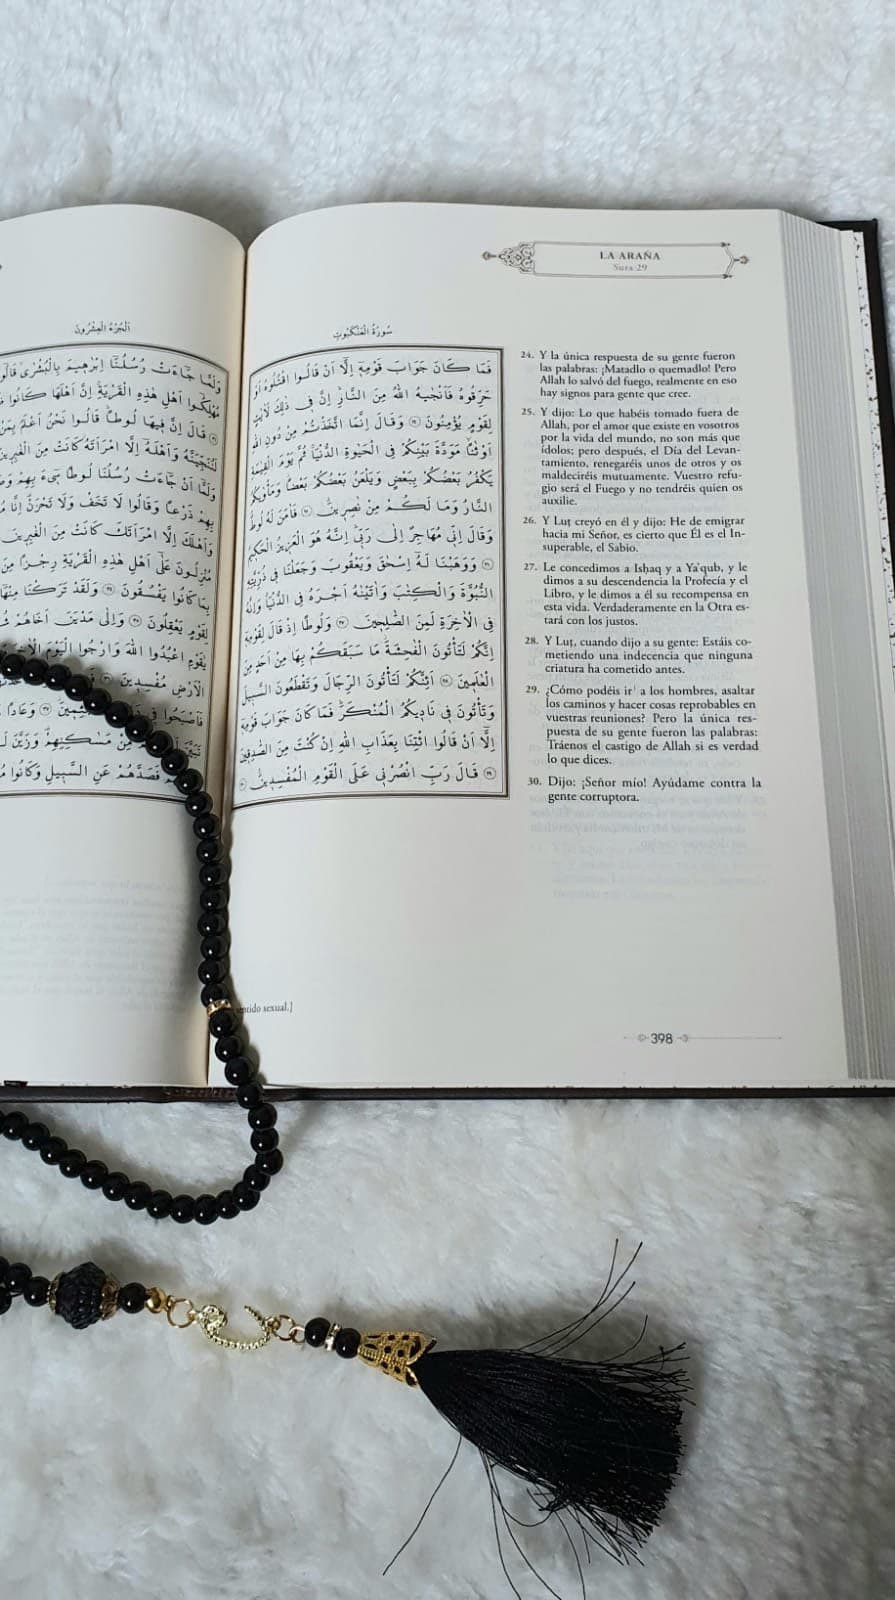 الجزء العشرون
ولما جاءت رسلنا إبرهيم بالبشرى قالوا
مهلكوا أهل هذه القرية إن أهلها كانوا
قال إن فيها لوطا قالوا نحن أعلم بمن
لننجينه وأهله إلا امرأته كانت من الغبرين
ولما أن جاءت رسلنا لوطا سيء بهم
بهم ذرعا وقالوا لا تخف ولا تحزن إنا
وأهلك إلا امرأتك كانت من الغبرين
منزلون على أهل هذه القرية رجزا من
بما كانوا يفسقون ولقد تركنا منها
لقوم يعقلون وإلى مدين أخاهم
يقوم اعبدوا الله وارجوا اليوم
الأرض مفسدين
فأصبحوا في وعادا
تبين من مسكنهم وزين
فصدهم عن السبيل وكانوا
سورة العنكبوت
فما كان جواب قومه إلا أن قالوا اقتلوه أو
حرقوه فأنجىه الله من النار إن في ذلك لأيت
لقوم يؤمنون ٢٤ وقال إنما اتخذتم من دون الله
أوثنا مودة بينكم في الحيوة الدنيا ثم يوم القيمة
يكفر بعضكم ببعض ويلعن بعضكم بعضا ومأويكم
النار وما لكم من نصرين ٢٥ فأمن له لوط
وقال إني مهاجر إلى ربي إنه هو العزيز الحكيم
٢٦ ووهبنا له إسحق ويعقوب وجعلنا في ذريته
النبوة والكتب وأتينه أجره في الدنيا وإنه
في الأخرة لمن الصلحين ٢٧ ولوطا إذ قال لقومه
إنكم لتأتون الفحشة ما سبقكم بها من أحد من
العلمين ٢٨ أئنكم لتأتون الرجال وتقطعون السبيل
وتأتون في ناديكم المنكر فما كان جواب قومه
إلا أن قالوا ائتنا بعذاب الله إن كنت من الصدقين
٢٩ قال رب انصرني على القوم المفسدين ٣٠
LA ARAÑA
Sura 29
24. Y la única respuesta de su gente fueron
las palabras: ¡Matadlo o quemadlo! Pero
Allah lo salvó del fuego, realmente en eso
hay signos para gente que cree.
25. Y dijo: Lo que habéis tomado fuera de
Allah, por el amor que existe en vosotros
por la vida del mundo, no son más que
ídolos; pero después, el Día del Levan-
tamiento, renegaréis unos de otros y os
maldeciréis mutuamente. Vuestro refu-
gio será el Fuego y no tendréis quien os
auxilie.
26. Y Luṭ creyó en él y dijo: He de emigrar
hacia mi Señor, es cierto que Él es el In-
superable, el Sabio.
27. Le concedimos a Isḥaq y a Ya'qub, y le
dimos a su descendencia la Profecía y el
Libro, y le dimos a él su recompensa en
esta vida. Verdaderamente en la Otra es-
tará con los justos.
28. Y Luṭ, cuando dijo a su gente: Estáis co-
metiendo una indecencia que ninguna
criatura ha cometido antes.
29. ¿Cómo podéis ir¹ a los hombres, asaltar
los caminos y hacer cosas reprobables en
vuestras reuniones? Pero la única res-
puesta de su gente fueron las palabras:
Tráenos el castigo de Allah si es verdad
lo que dices.
30. Dijo: ¡Señor mío! Ayúdame contra la
gente corruptora.
sexual.]
398